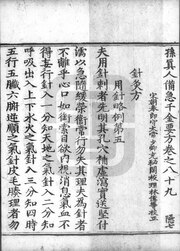 孫真人備急千金要方卷之八十九
宋朝奉郎守太常少卿充秘閣校理林億等校正
針灸方
用針略例第五
夫用針刺者先明其孔穴補虛瀉實送堅付
濡以急隨緩榮衛常行勿失其理夫為針者
不離乎心口如銜索目欲內視消息氣血不
得妄行針入一分知天地之氣針入二分知
呼吸出入上下水火之氣針入三分知四時
五行五臟六腑逆順之氣針皮毛腠理者勿